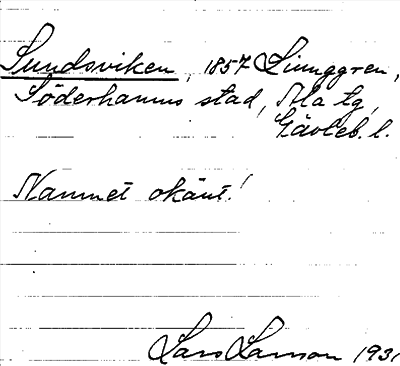 Sundsviken, 1857 Linnggren,
Söderhamns stad, Ala tg,
Gävleb. l.
Namnet okänt!
Lars Larson 1931